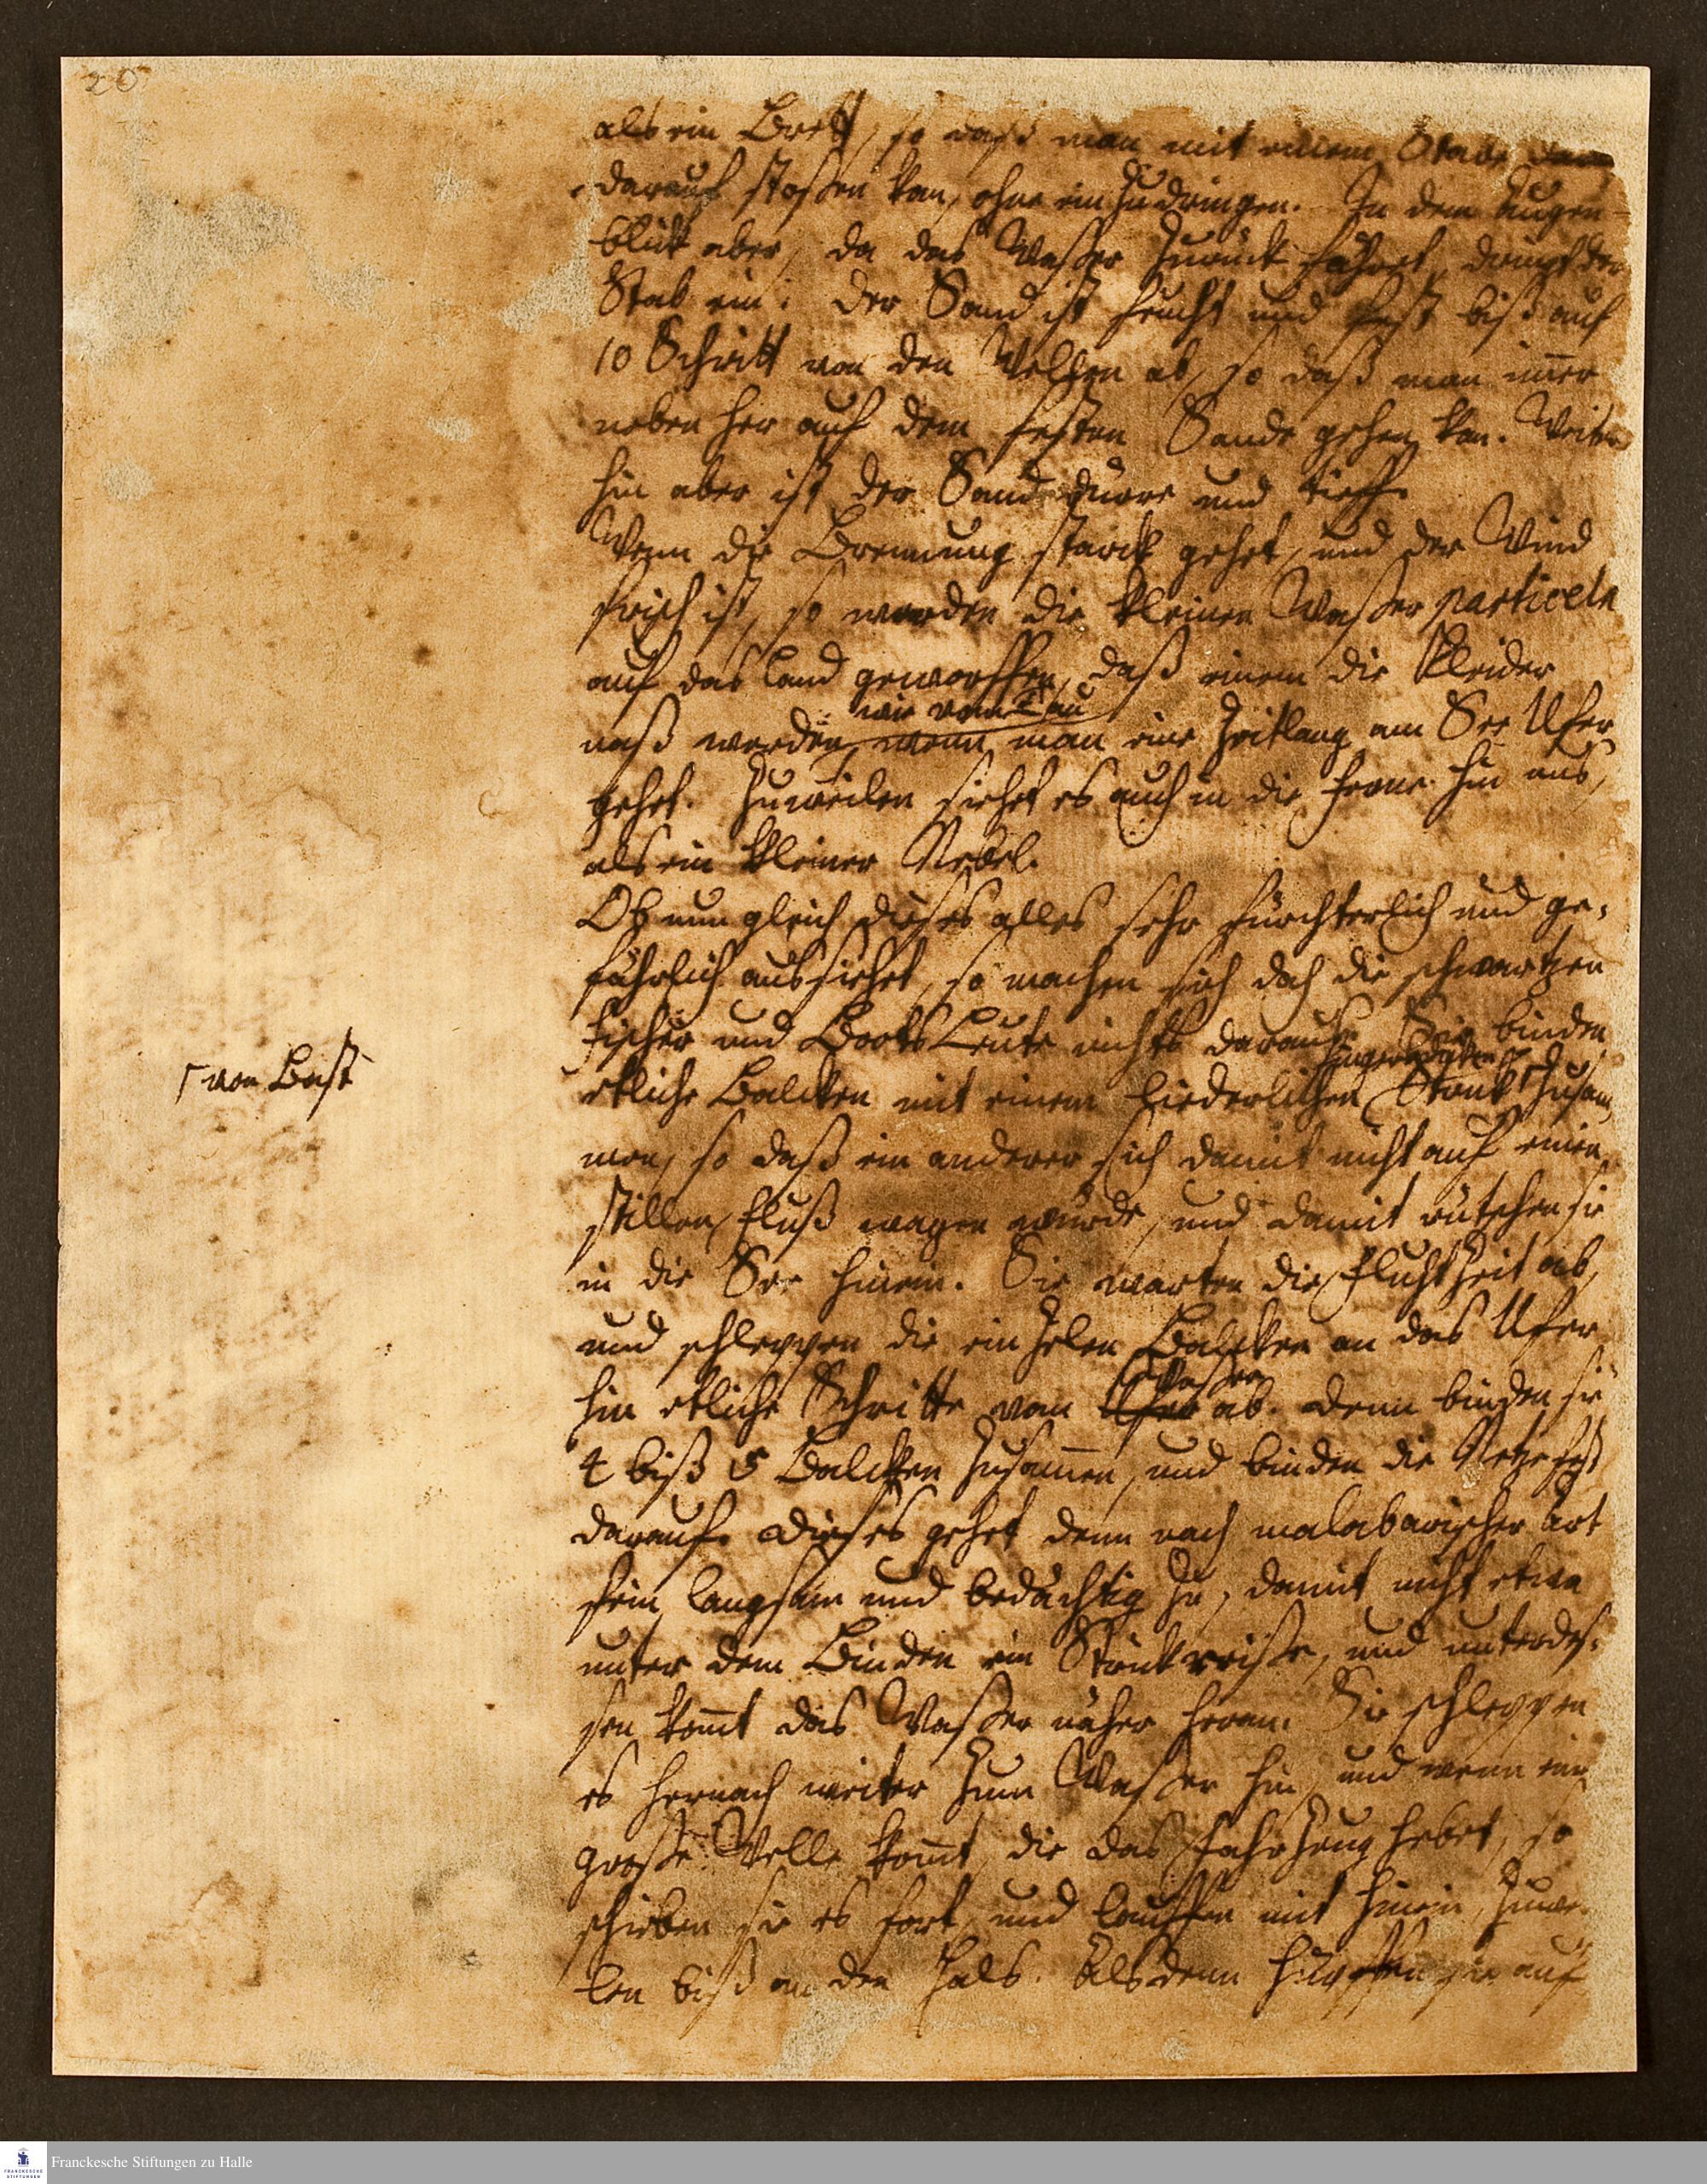 20
als ein Brett, so daß man mit einem Stabe
darauf stoßen kan, ohne einzudringen. In dem Augen-
blick aber, da das Waßer zurück fähret, dringt der
Stab ein: Der Sand ist feucht und fest biß auf
10 Schritt von den Wellen ab, so daß man im̅er
neben her auf dem festen Sande gehen kan. Weiter
hin aber ist der Sand dürre und tieff.
Wenn die Brennung starck gehet, und der Wind
frisch ist, so werden die kleinen Waßer particeln
auf das Land geworffen, daß einem die Kleider
wie vom Tau
naß werden, wenn man eine Zeitlang am See Ufer
gehet. Zuweilen siehet es auch in die Ferne hin aus,
als ein kleiner Nebel.
Ob nun gleich dieses alles sehr fürchterlich und ge-
fährlich aussiehet, so machen sich doch die schwartzen
Fischer und Boots Leute nichts daraus. Sie binden
etliche Balcken mit einem liederlichen Strick zusam-
von Bast
men, so daß ein anderer sich damit nicht auf einen
stillen Fluß wagen würde, und damit rutschen sie
in die See hinein. Sie warten die Fluht Zeit ab,
und schleppen die einzelen Balcken an das Ufer
hin etliche Schritte vom Ufer ab. Denn binden sie
Waßer
4 biß 5 Balcken zusam̅en, und binden die Netze fest
darauf. Dieses gehet denn nach malabarischer Art
fein langsam und bedächtig zu, damit nicht etwa
unter dem Binden ein Strick reiße, und unterdes-
sen kom̅t das Waßer näher heran. Sie schleppen
es hernach weiter zum Waßer hin, und wenn ein
große Welle kom̅t, die das Fahrzeug hebet, so
schieben sie es fort, und lauffen mit hinein, zuwei-
len biß an den Hals. Alsdenn hüpffen sie auf
Franckesche Stiftungen zu Halle